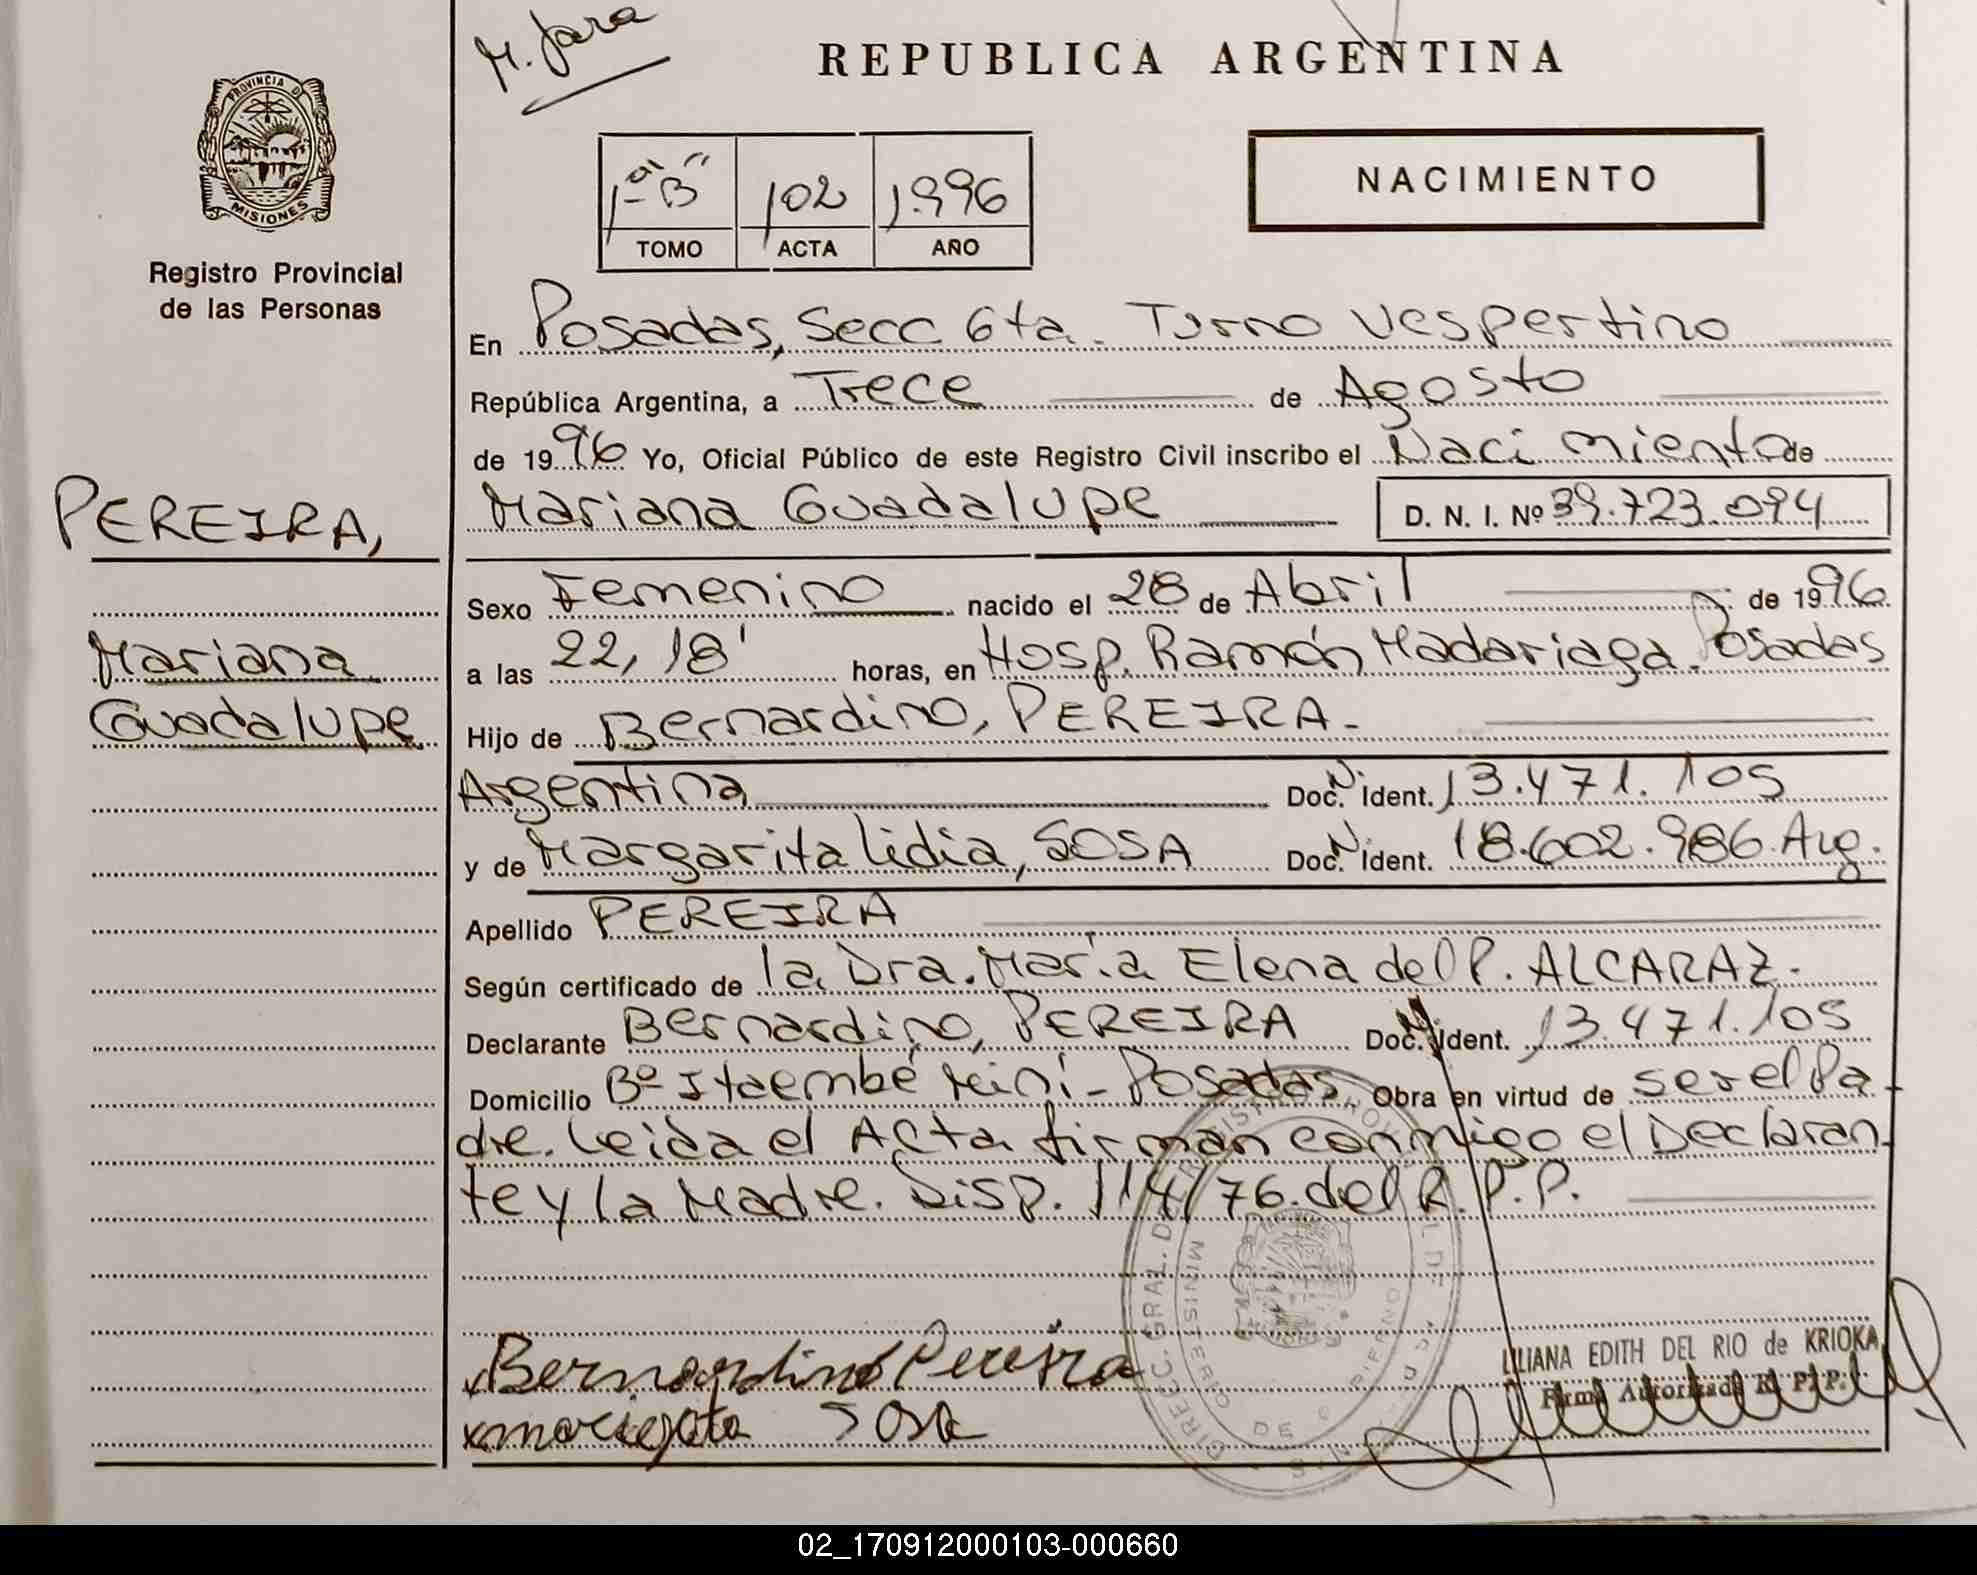 M. Jara
REPUBLICA ARGENTINA
PROVINCIA DE
MISIONES
Registro Provincial
de las Personas
1ª "B" 102 1.996
TOMO ACTA AÑO
NACIMIENTO
En Posadas, Secc 6ta. Turno Vespertino
República Argentina, a Trece de Agosto
de 1996 Yo, Oficial Público de este Registro Civil inscribo el Nacimiento de
PEREIRA,
Mariana Guadalupe D. N. I. Nº 39.723.094
Sexo Femenino nacido el 28 de Abril de 1996
Mariana
a las 22,18' horas, en Hosp. Ramón Madariaga. Posadas
Guadalupe
Hijo de Bernardino, PEREIRA.
Argentina Doc. N. Ident. 13.471.105
y de Margarita Lidia, SOSA Doc. N. Ident. 18.602.986 Arg.
Apellido PEREIRA
Según certificado de la Dra. María Elena del P. ALCARAZ.
Declarante Bernardino, PEREIRA Doc. N. Ident. 13.471.105
Domicilio Bº Itaembé Miní - Posadas Obra en virtud de ser el Pa-
dre. Leida el Acta firman conmigo el Declaran-
te y la Madre. Disp. 114/76 del R.P.P.
DIREC. GRAL. DE
MINISTERIO DE GOBIERNO
x Bernardino Pereira
LILIANA EDITH DEL RIO de KRIOKA
Firma Autorizada R. P. P.
x Sosa
02_170912000103-000660